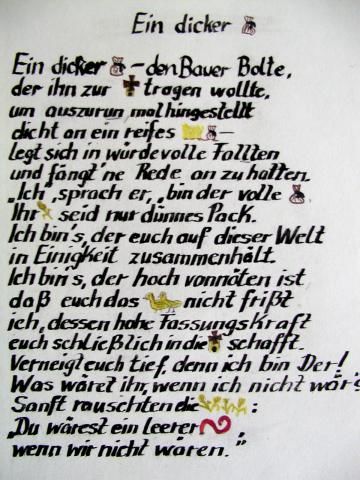 Ein dicker
Ein dicker – den Bauer Bolte,
der ihn zur tragen wollte,
um auszurun mal hingestellt
dicht an ein reifes –
legt sich in würdevolle Fallten
und fängt 'ne Rede an zu halten.
„Ich", sprach er, „bin der volle
Ihr seid nur dünnes Pack.
Ich bin's, der euch auf dieser Welt
in Einigkeit zusammenhält.
Ich bin's, der hoch vonnöten ist
daß euch das nicht frißt
ich, dessen hohe Fassungskraft
euch schließlich in die schafft.
Verneigt euch tief, denn ich bin Der!
Was wäret ihr, wenn ich nicht wär'?
Sanft rauschten die :
„Du wärest ein leerer ,
wenn wir nicht wären."